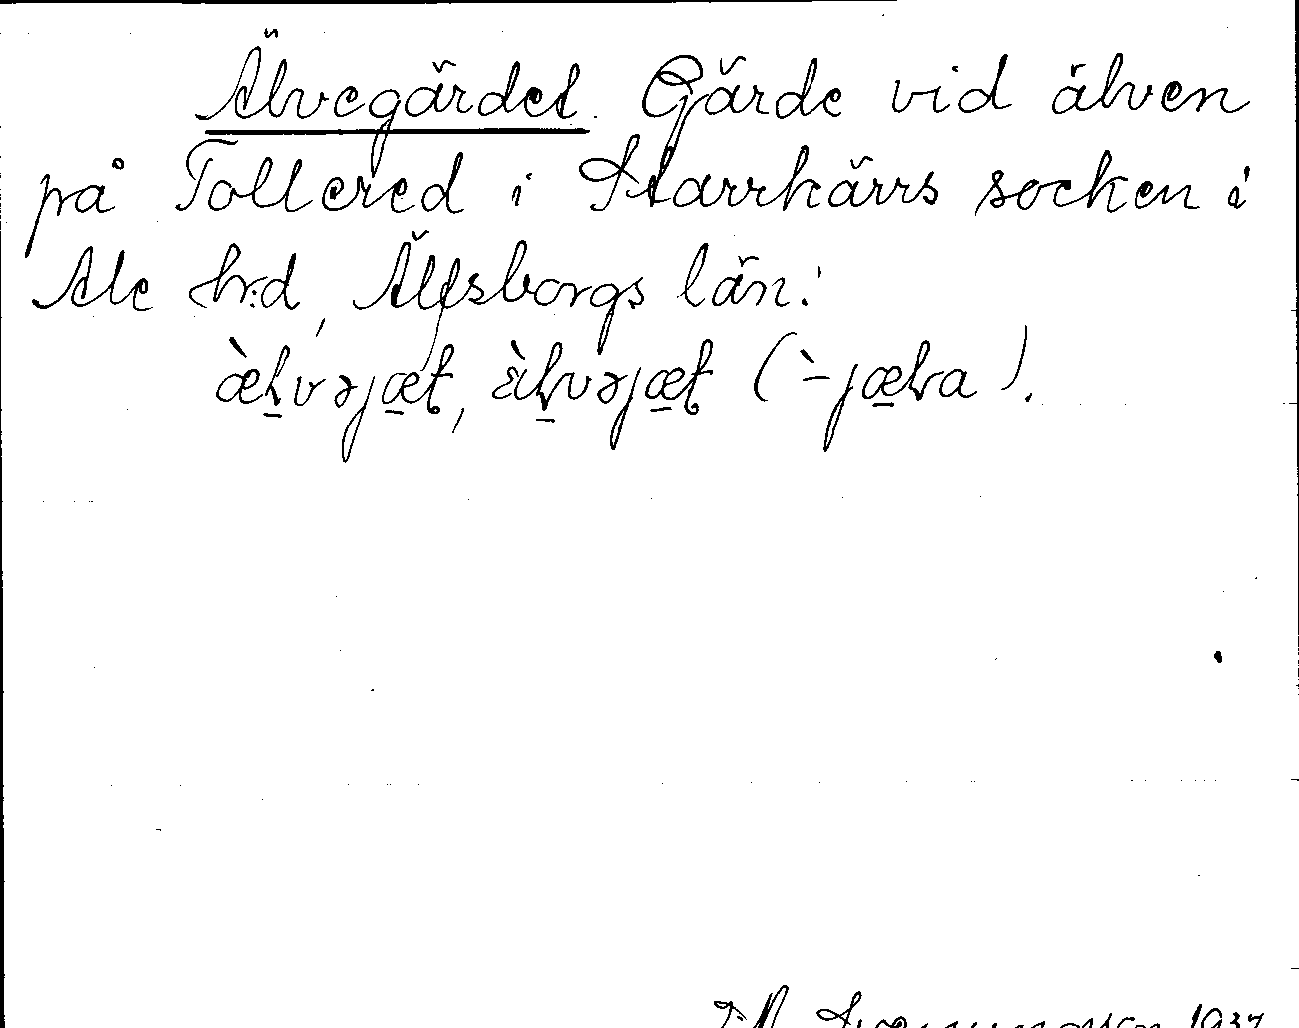 Älvegärdet. Gärde vid älven
på Tollered i Starrkärrs socken i
Ale h:d, Älfsborgs län:
1937